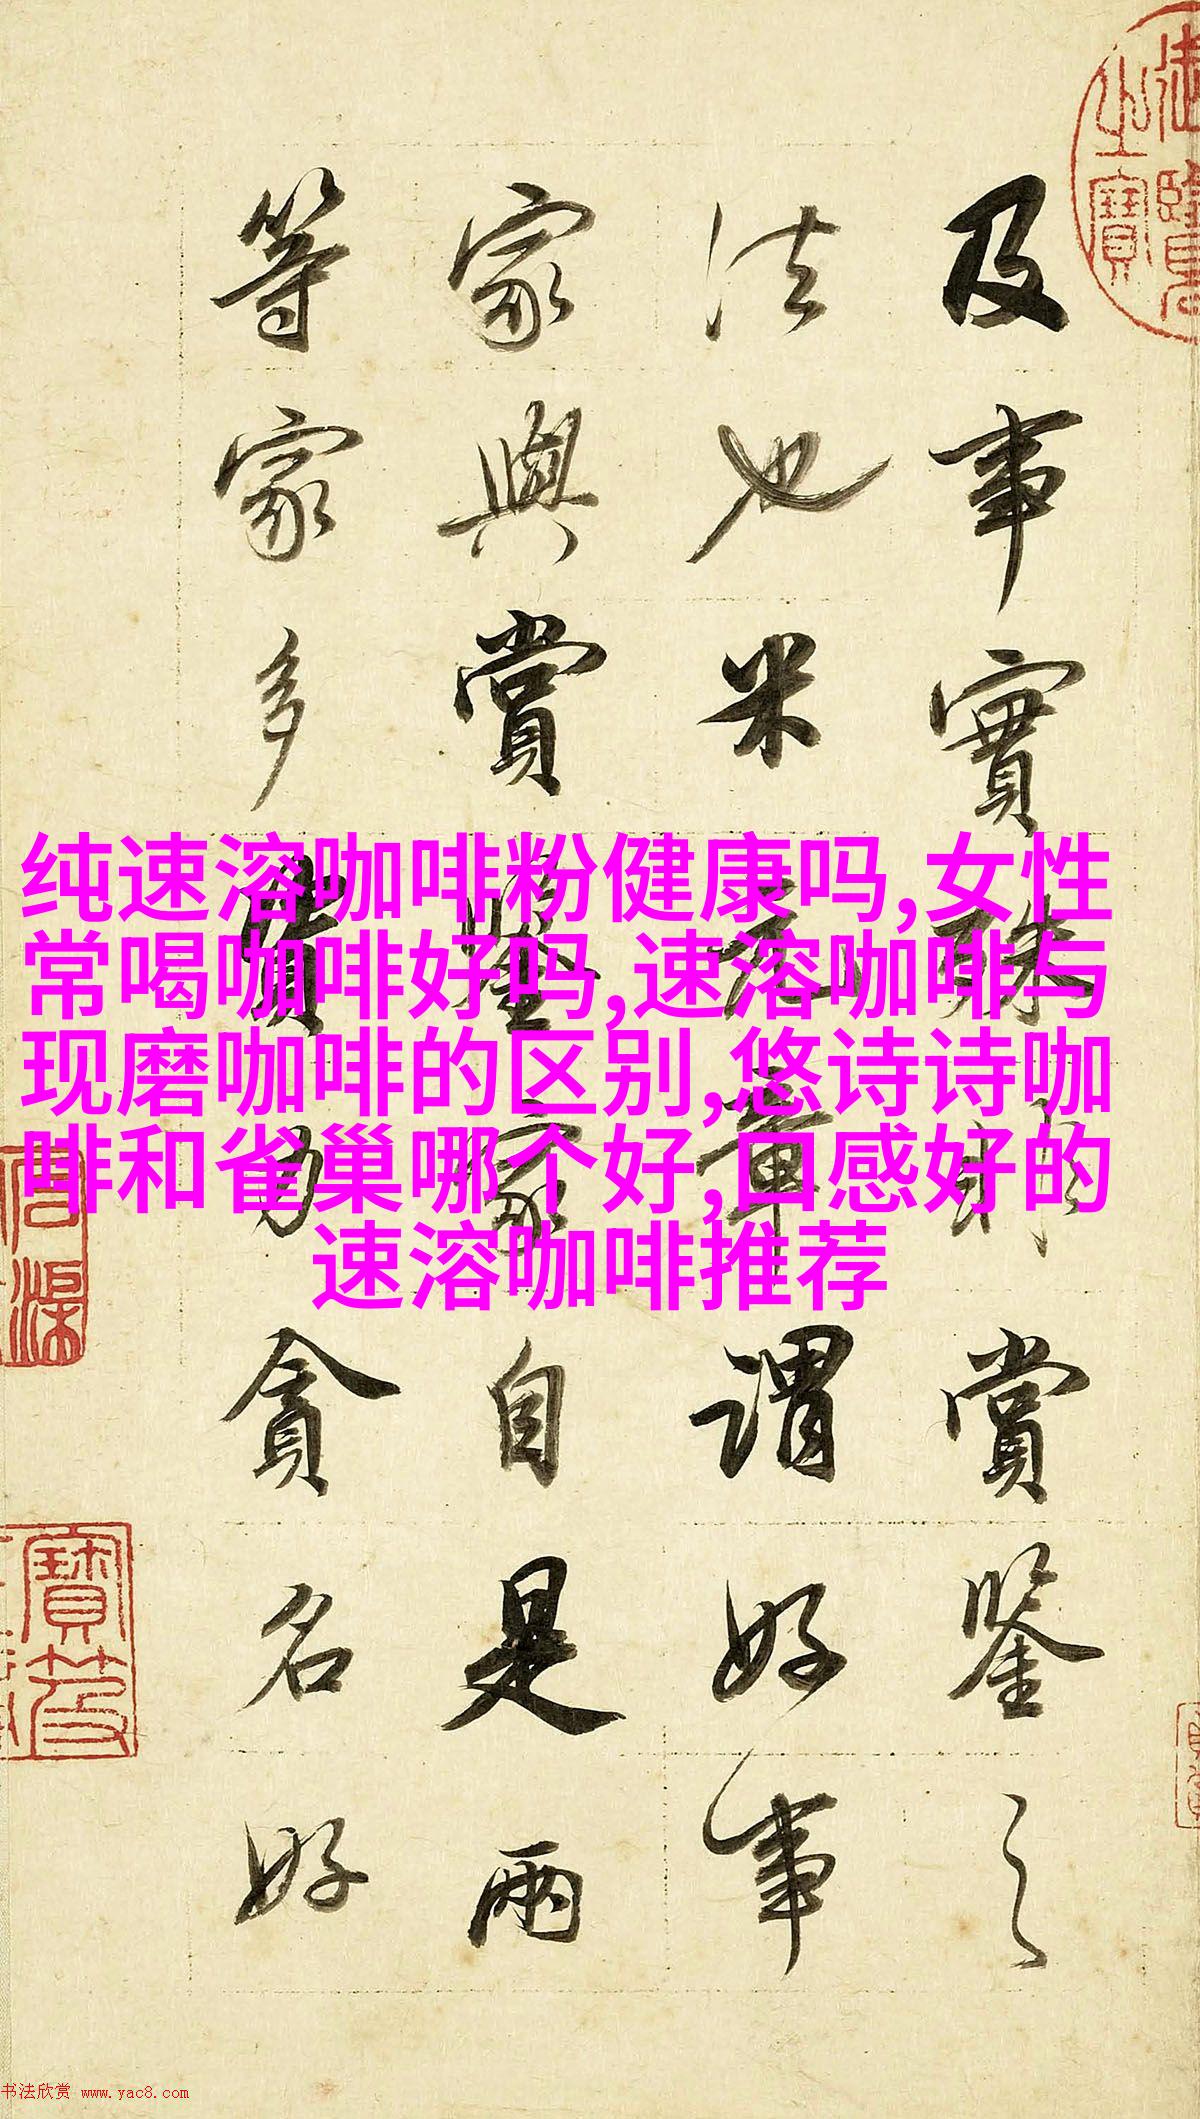 御覽之寶
及事實殊賞鑒之
法也米元章謂好事
家與賞鑒家自是兩
等家多貲力貪名好
纯速溶咖啡粉健康吗,女性
常喝咖啡好吗,速溶咖啡与
现磨咖啡的区别,悠诗诗咖
啡和雀巢哪个好,口感好的
速溶咖啡推荐
书法欣赏 www.yac8.com